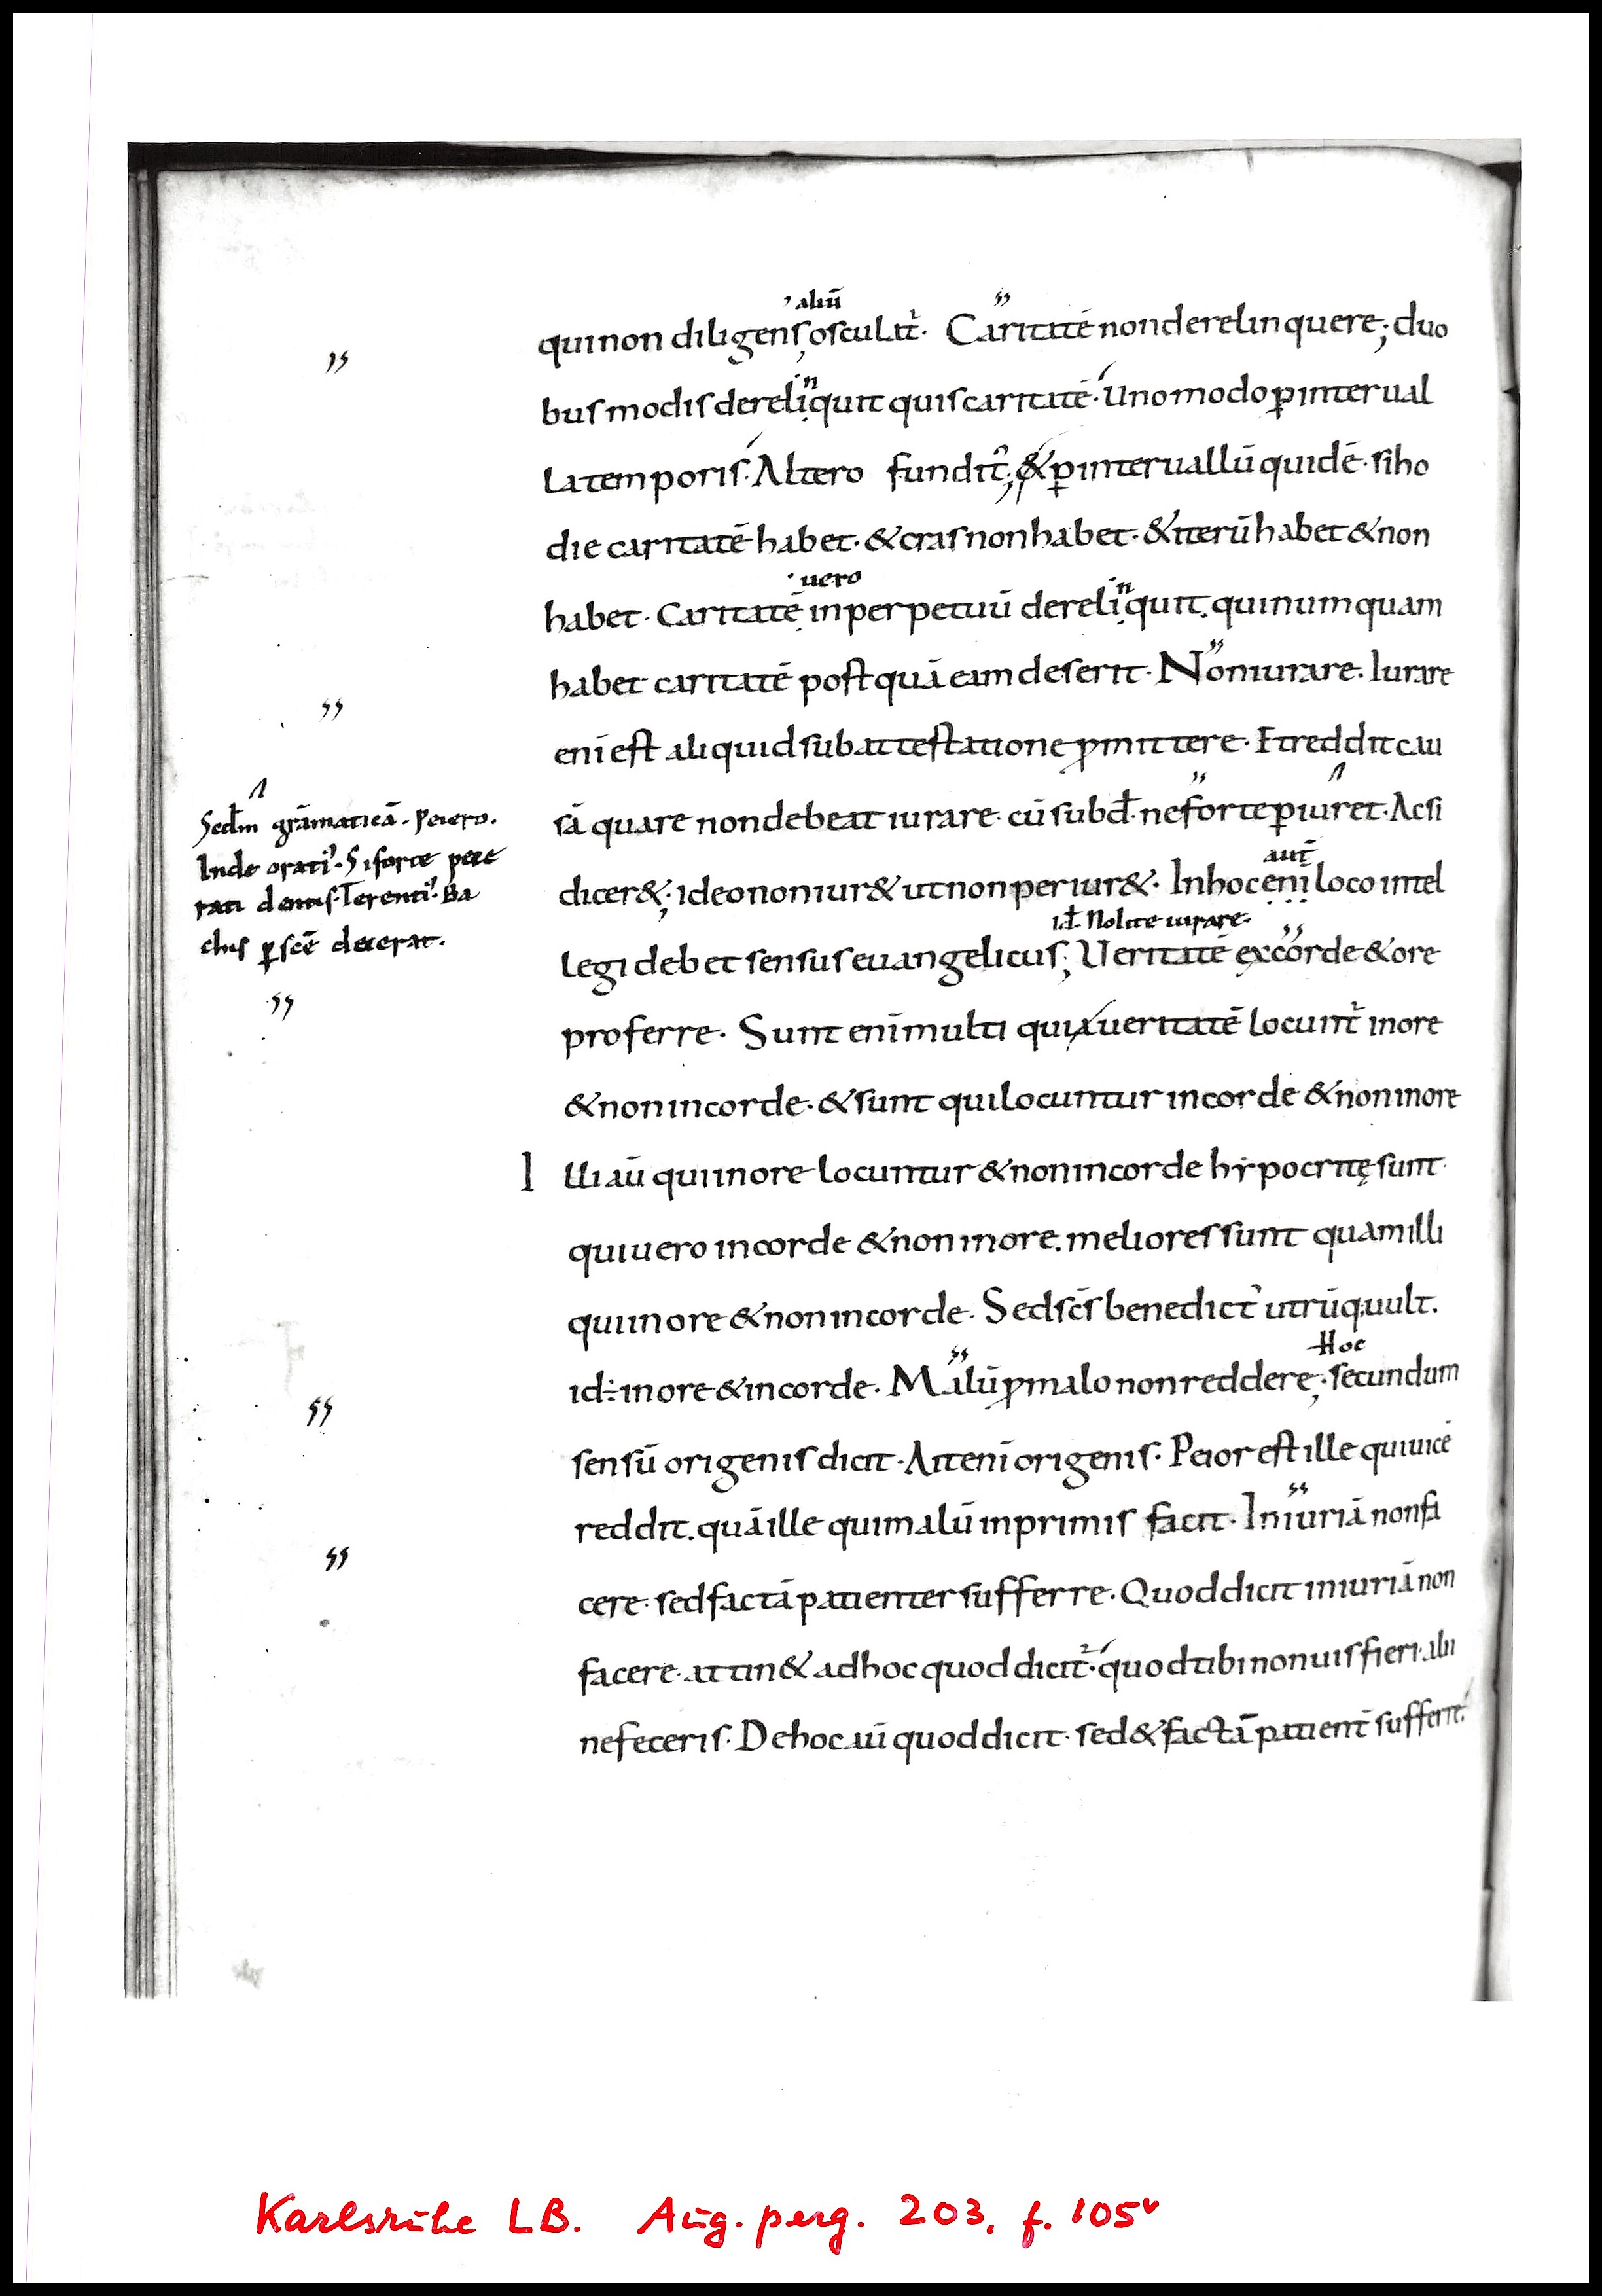 aliū
qui non diligens osculat᷑. Caritatē non derelinquere; duo
bus modis derelinquit quis caritatē. Uno modo ꝑ interual
la temporis. Altero fundit᷑; & ꝑ interuallū quidē. si ho
die caritatē habet. & cras non habet. & iterū habet & non
uero
habet. Caritatē in perpetuū derelinquit. qui numquam
habet caritatē postquā eam deserit. Nōn iurare. Iurare
eni est aliquid sub attestatione ꝓmittere. Et reddit cau
sā quare non debeat iurare. cū subđ. ne forte ꝑiuret. Ac si
aut̄
dicer&; ideo non iur& ut non periur&. In hoc enī loco intel
iđ. Nolite iurare.
legi debet sensus euangelicus; Ueritatē ex corde & ore
proferre. Sunt enī multi qui ueritatē locunt᷑ in ore
& non in corde. & sunt qui locuntur in corde & non in ore
Illi aū qui in ore locuntur & non in corde hẏpocritę sunt.
qui uero in corde & non in ore. meliores sunt quam illi
qui in ore & non in corde. Sed scs̄ benedict᾽ utrūq; uult.
id ÷ in ore & in corde. Malū ꝓ malo non reddere; secundum
Hoc
sensū origenis dicit. Ait enī origenis. Peior est ille qui uicē
reddit. quā ille qui malū in primis facit. Iniuriā non fa
cere. sed factā patienter sufferre. Quod dicit iniuriā non
facere. attin& ad hoc quod dicit᷑. quod tibi non uis fieri. alii
ne feceris. De hoc ūi quod dicit. sed & factā patient̄ sufferre.
Secđm grāmaticā. Peiero.
Inde orati᾽. Si forte peie
rati dentis. Terenti᾽. Ba
chis ꝑ scē deierat.
Karlsruhe LB. Aug. perg. 203, f. 105v